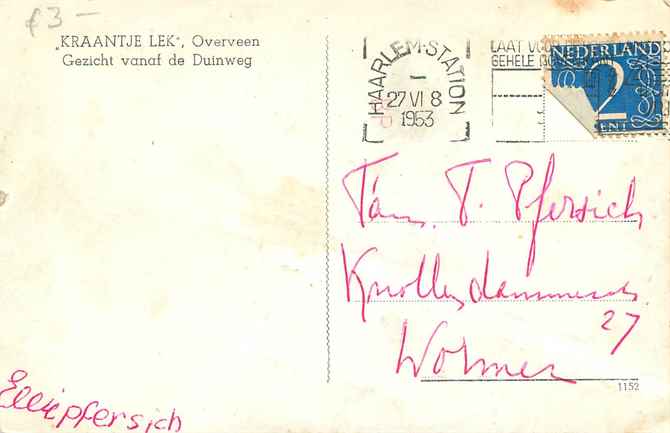 f 3-
"KRAANTJE LEK", Overveen
Gezicht vanaf de Duinweg
HAARLEM-STATION
27 VI 8
1953
LAAT VOOR
GEHELE
NEDERLAND
2
CENT
Fam. T. Pfersich
27
Wormer
1152
Elliepfersich